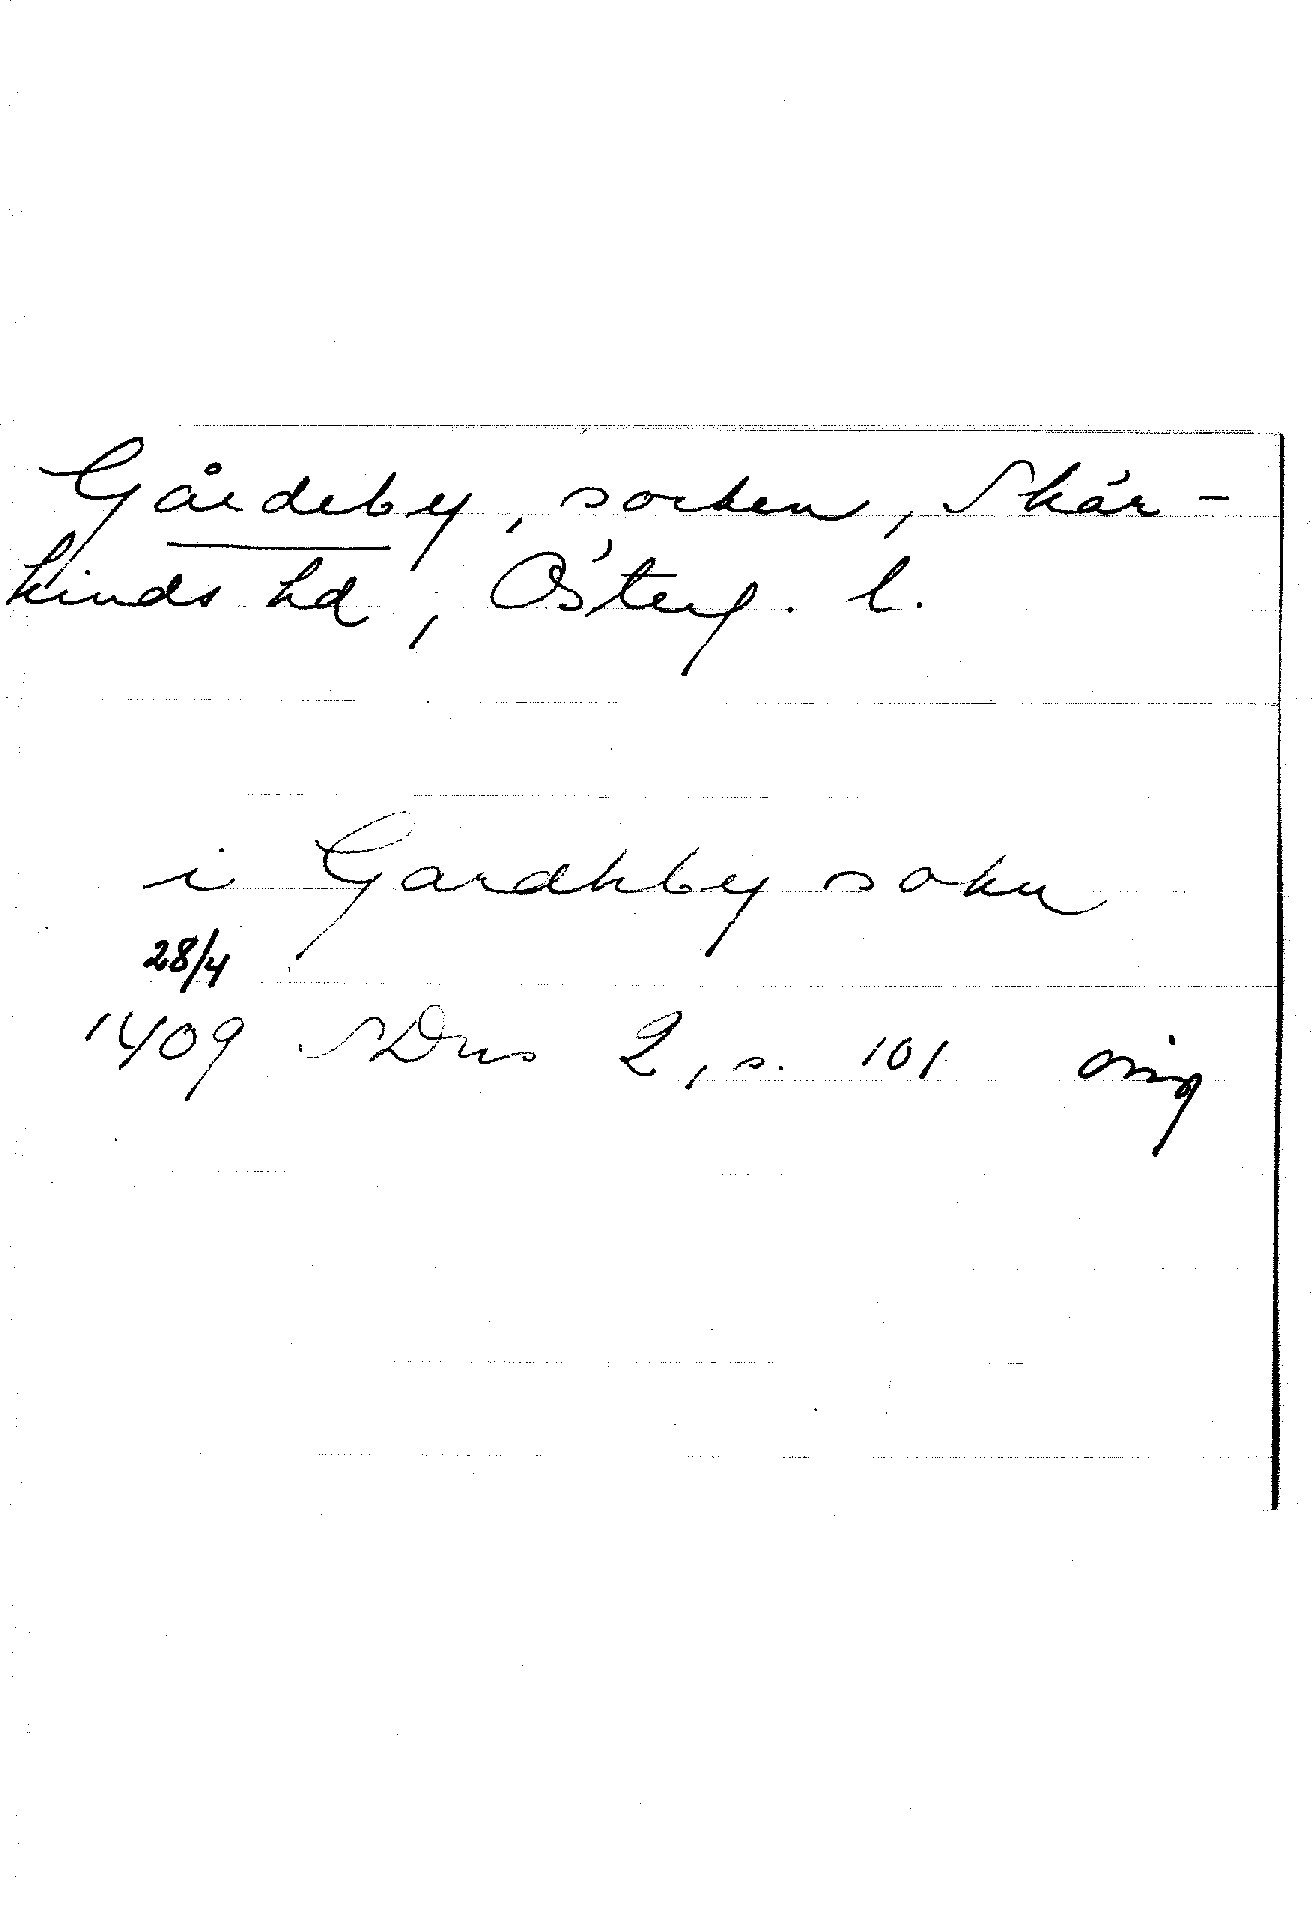 Gårdeby, socken, Skär-
kinds hd, Österg. l.
i Gardhby sokn
28/4
1409 SDns 2, s. 101 orig